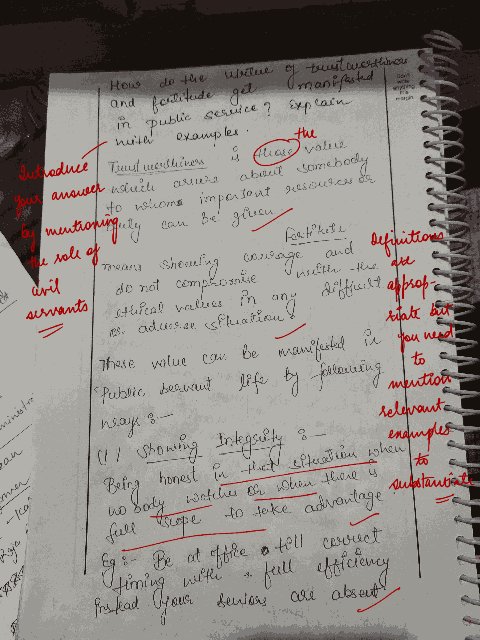 How do the virtue of trustworthiness
and fortitude get manifested
in public service? Explain
with examples.
the
Trustworthiness is those value
which arise about somebody
to whom important resources or
duty can be given
Fortitude
means showing courage and
do not compromise with the
ethical values in any difficult
or adverse situation.
These value can be manifested in
Public servant life by following
ways :-
(1) Showing Integrity :-
Being honest in that situation when
no body watches or when there is
full scope to take advantage
Eg:- Be at office till correct
timing with full efficiency
Instead your seniors are absent
Introduce
your answer
by mentioning
the role of
civil
servants
Definitions
are
approp-
riate but
you need
to
mention
relevant
examples
to
substantiate
Don't
write
anything
this
margin